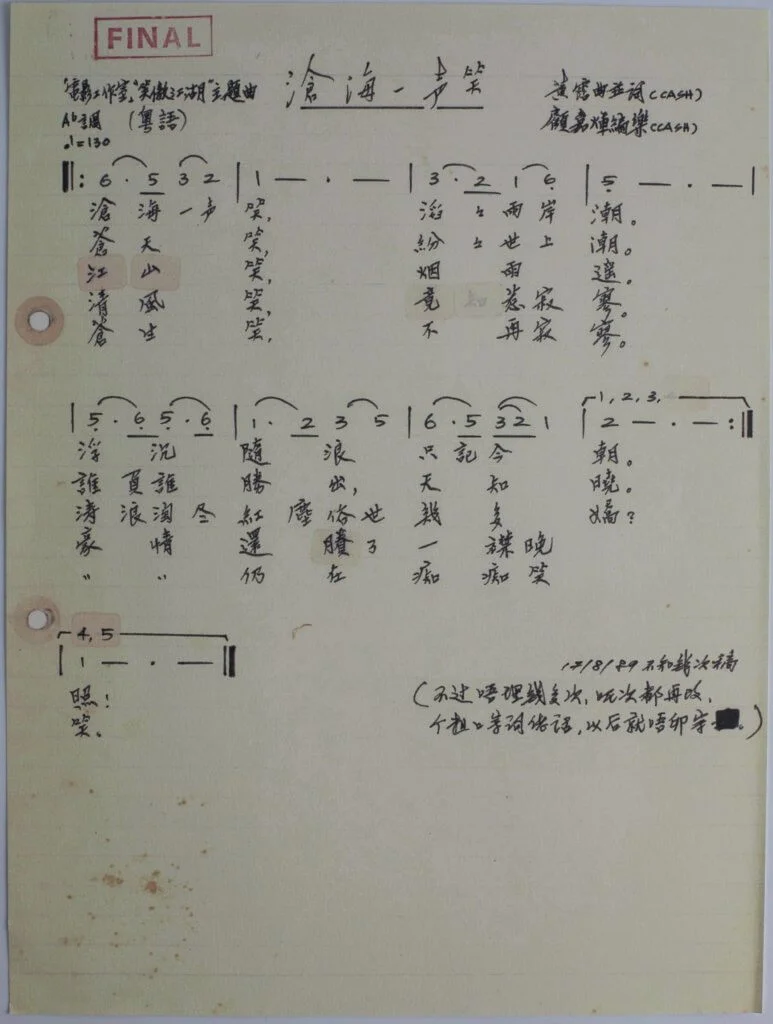 FINAL
滄海一声笑
"電影工作室""笑傲江湖"主題曲
黃霑曲並詞(CASH)
A♭調 (粵語)
顧嘉煇編樂(CASH)
♩=130
‖: 6 · 5 3 2 | 1 — · — | 3 · 2 1 6 | 5 — · — |
滄 海 一 声 笑, 滔 〻 兩 岸 潮。
蒼 天 笑, 紛 〻 世 上 潮。
江 山 笑, 烟 雨 遥。
清 風 笑, 竟 惹 寂 寥。
蒼 生 笑, 不 再 寂 寥。
1, 2, 3,
| 5 · 6 5 · 6 | 1 · 2 3 5 | 6 · 5 3 2 1 | 2 — · — :‖
浮 沉 隨 浪 只 記 今 朝。
誰 負 誰 勝 出, 天 知 曉。
濤 浪 淘 尽 紅 塵 俗 世 幾 多 嬌?
豪 情 還 賸 了 一 襟 晚
〃 〃 仍 在 痴 痴 笑
4, 5
| 1 — · — ‖
照!
笑。
17/8/89 不知幾次稿
(不过唔理幾多次, 呢次都再改,
个粗口等词佬話, 以后就唔卯